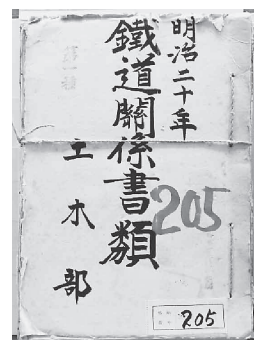 明治二十年
鐵道關係書類
土木部
205
205